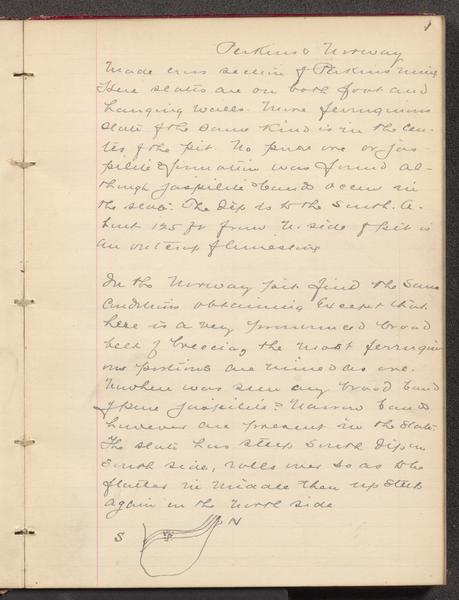 1
Perkins & Norway
Made cross section of Perkins mine
Here slates are on both foot and
hanging walls. More ferruginous
slate of the same kind is in the cen-
ter of the pit. No pure ore or jas-
pilite formation was found al-
though jaspilite bands occur in
the slate. The dip is to the South. A-
bout 125 ft from N. side of pit is
an outcrop of limestone
In the Norway pit find the same
conditions obtaining except that
here is a very pronounced broad
belt of breccia, the most ferrugin
ous portions are mined as ore.
Nowhere was seen any broad band
of pure jaspilite. Narrow bands
however are present in the slate.
The slate has steep South dip on
South side, rolls over so as to be
flatter in middle then up steep
again on the North side
S N